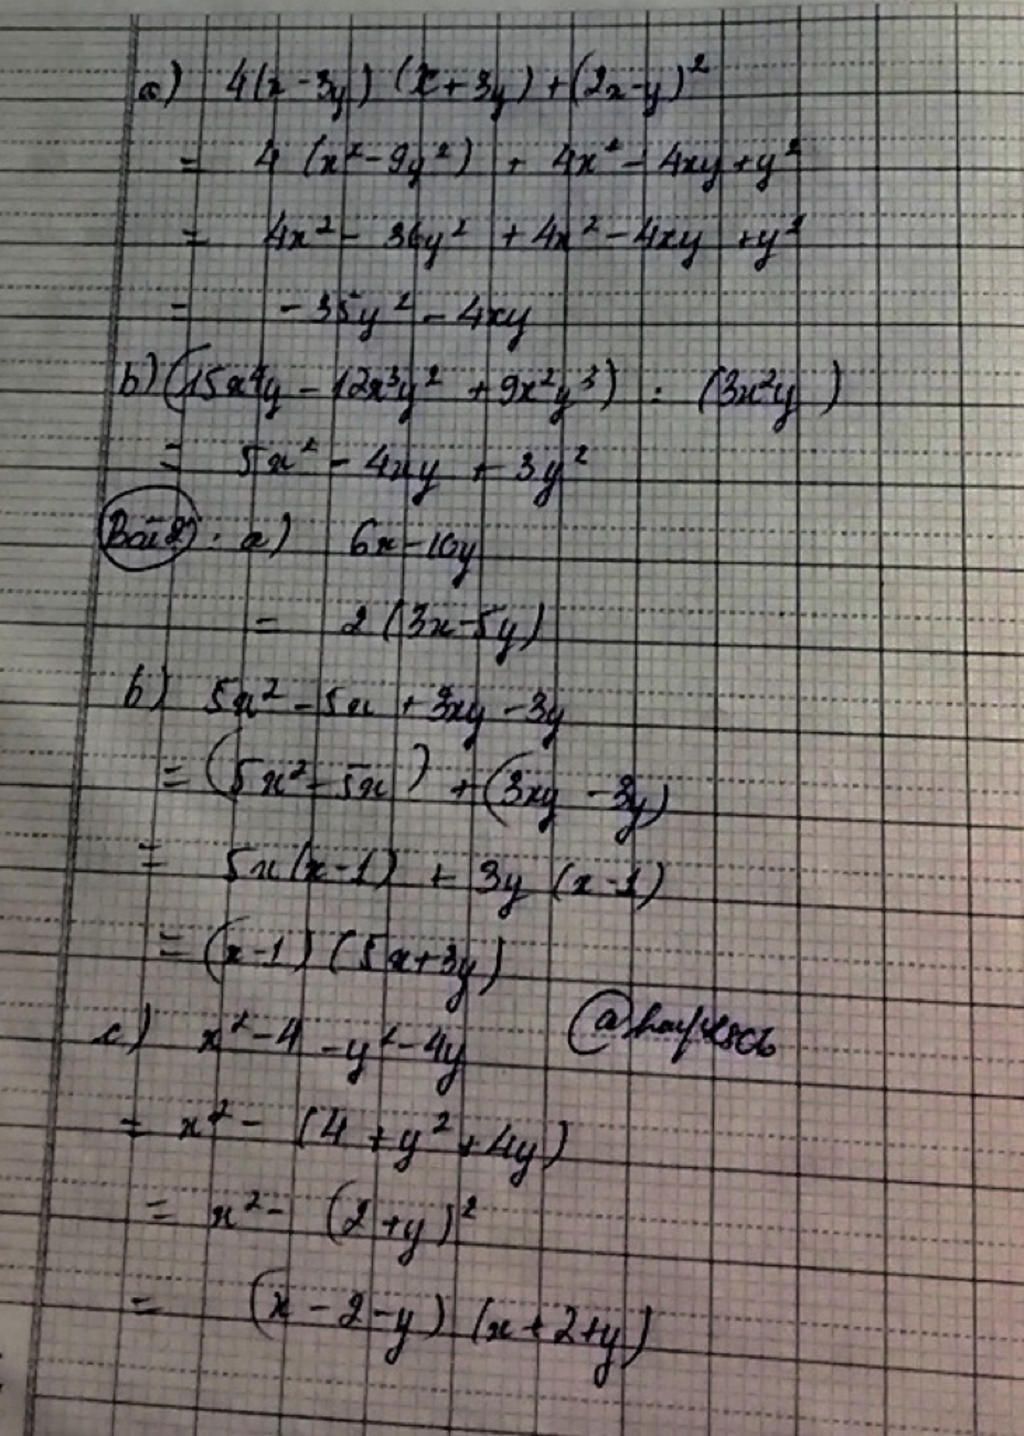 a) 4(x-3y) (x+3y) + (2x-y)²
= 4 (x²-9y²) + 4x² - 4xy + y²
= 4x² - 36y² + 4x² - 4xy + y²
= -35y² - 4xy
b) (15x⁴y - 12x³y² + 9x²y³) : (3x²y)
= 5x² - 4xy + 3y²
Bài 2: a) 6x-10y
= 2 (3x-5y)
b) 5x² - 5x + 3xy - 3y
= (5x² - 5x) + (3xy - 3y)
= 5x(x-1) + 3y (x-1)
= (x-1) (5x+3y)
c) x² - 4 - y² - 4y
= x² - (4 + y² + 4y)
= x² - (2+y)²
= (x - 2 - y) (x + 2 + y)